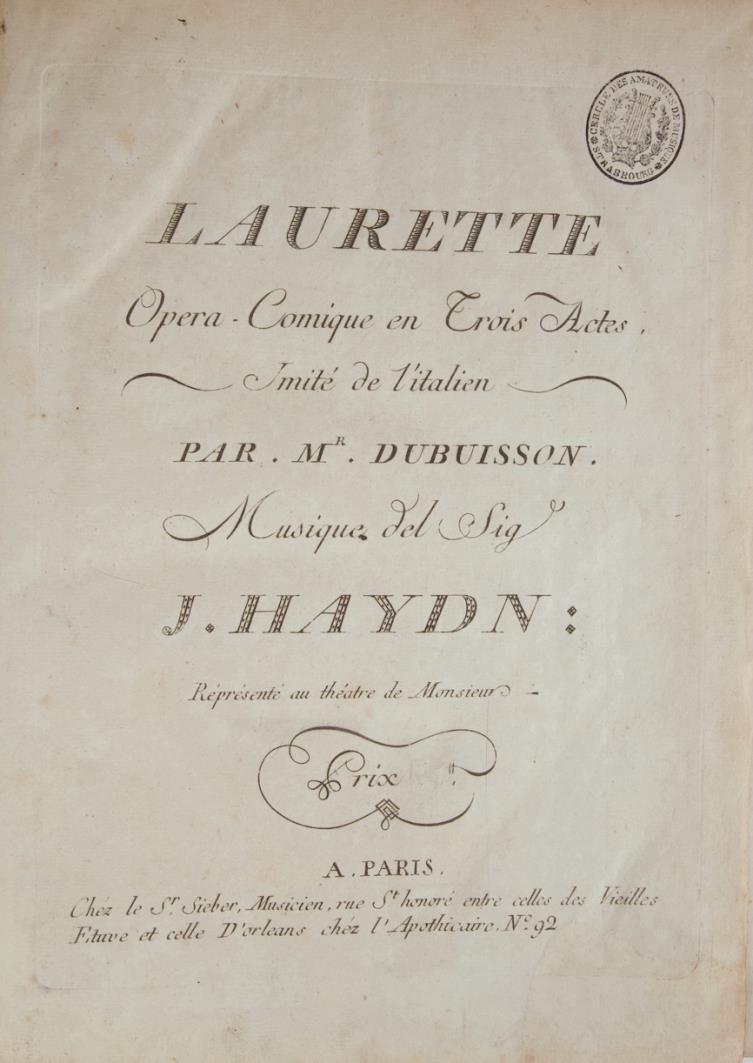 CERCLE DES AMATEURS DE MUSIQUE
STRASBOURG
LAURETTE
Opera-Comique en Trois Actes,
Jmité de l'italien
PAR. M.R DUBUISSON.
Musique del Sig
J. HAYDN:
Réprésenté au théatre de Monsieur
Prix ".
A. PARIS.
Chéz le Sr. Sieber, Musicien, rue St honoré entre celles des Vieilles
Etuve et celle D'orleans chéz l'Apothicaire, No. 92